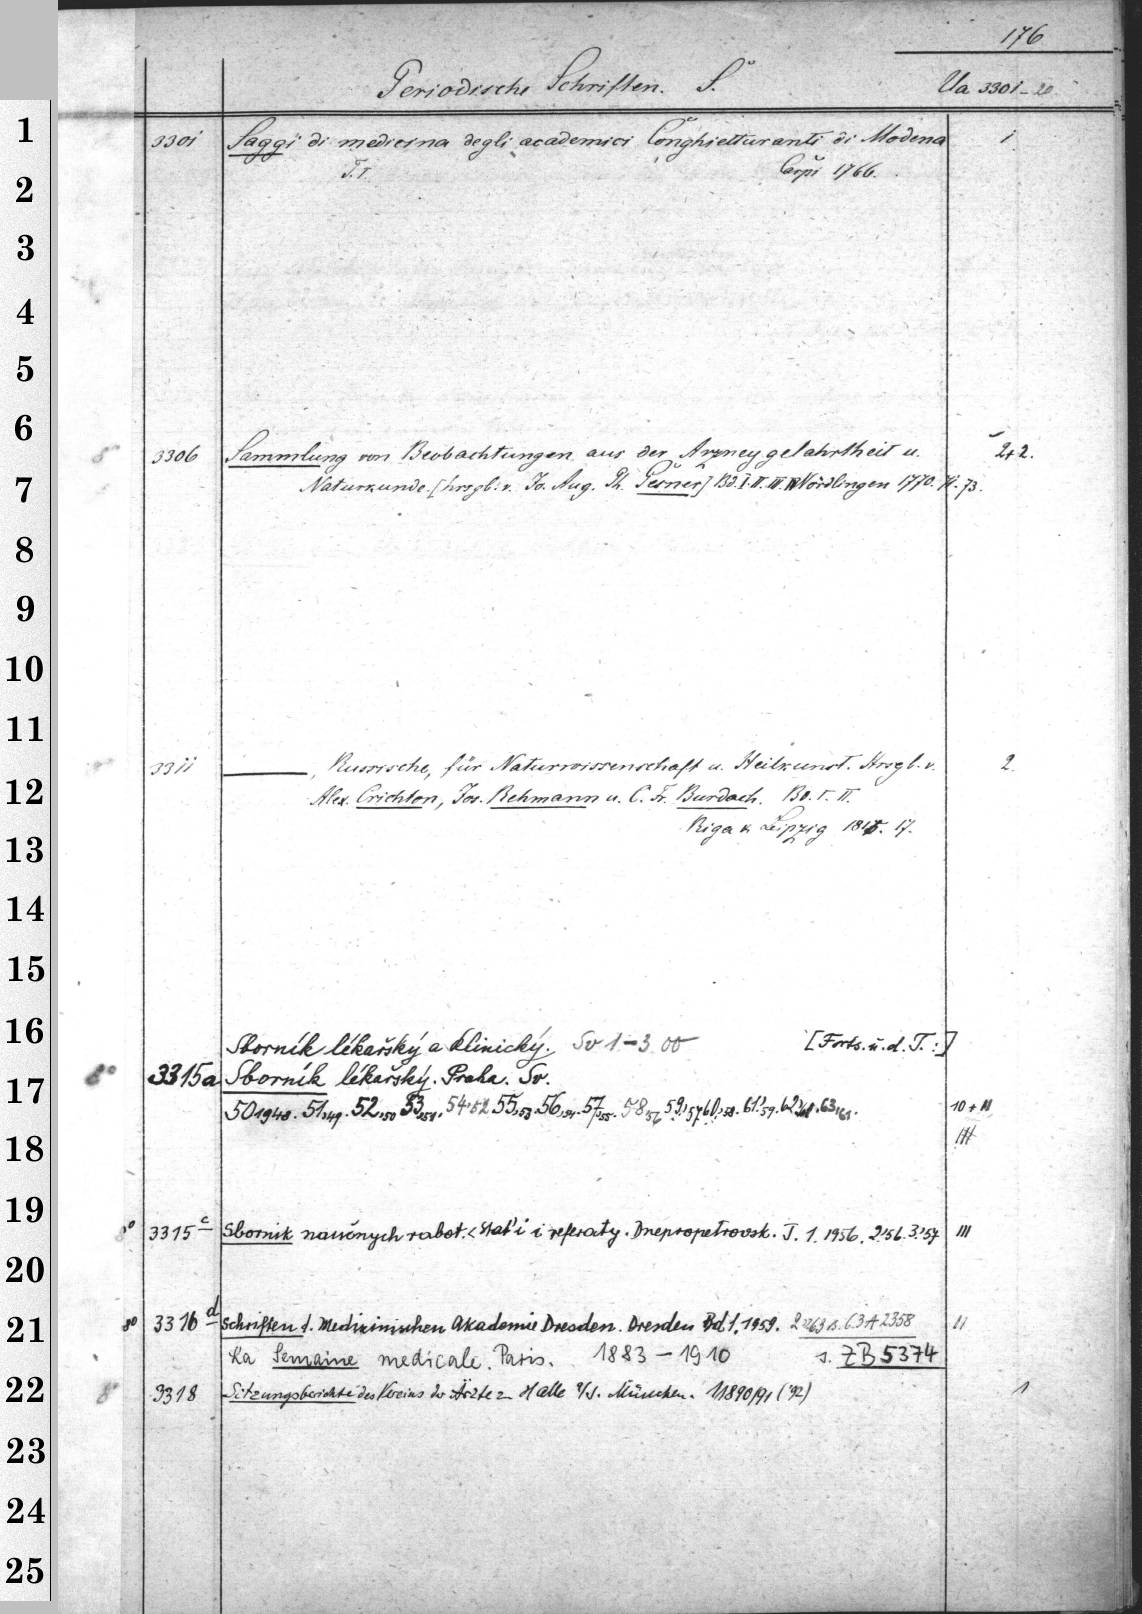 176
Periodische Schriften. S. Ua 3301-20.
1
3301 Saggi di medicina degli academici Conghietturanti di Modena 1
2
T. I. Carpi 1766.
3
4
5
6
8° 3306 Sammlung von Beobachtungen aus der Arzneygelahrtheit u. 2+2.
7
Naturkunde. [hrsgb. v. Jo. Aug. Ph. Gesner] Bd. I. II. III. IV Nördlingen 1770. 71. 73.
8
9
10
11
8° 3311 ———, Russische, für Naturwissenschaft u. Heilkunst. Hrsgb. v. 2.
12
Alex. Crichton, Jos. Rehmann u. C. Fr. Burdach. Bd. I. II.
13
Riga u. Leipzig 1815. 17.
14
15
16
Sborník lékařský a klinický. Sv 1-3 00 [Forts. u. d. T.:]
17
8° 3315a Sborník lékařský. Praha. Sv.
50 1948. 51,49. 52,50 53,51. 54,52 55,53 56,54. 57,55. 58,56 59,57. 60,58. 61,59. 62,60. 63,61. 10 +
18
19
8° 3315c Sbornik naučnych rabot. < Stat'i i referaty. Dnepropetrovsk. T. 1. 1956. 2.'56. 3.'57 III
20
21
8° 3316d Schriften d. Medizinischen Akademie Dresden. Dresden Bd. 1. 1959. 2 63 A 2358 II
La Semaine medicale. Paris. 1883 - 1910 s. ZB 5374
22
8° 3318 Sitzungsberichte des Vereins der Ärzte z Halle a/S. München. 1 1890/91 ('92) 1
23
24
25